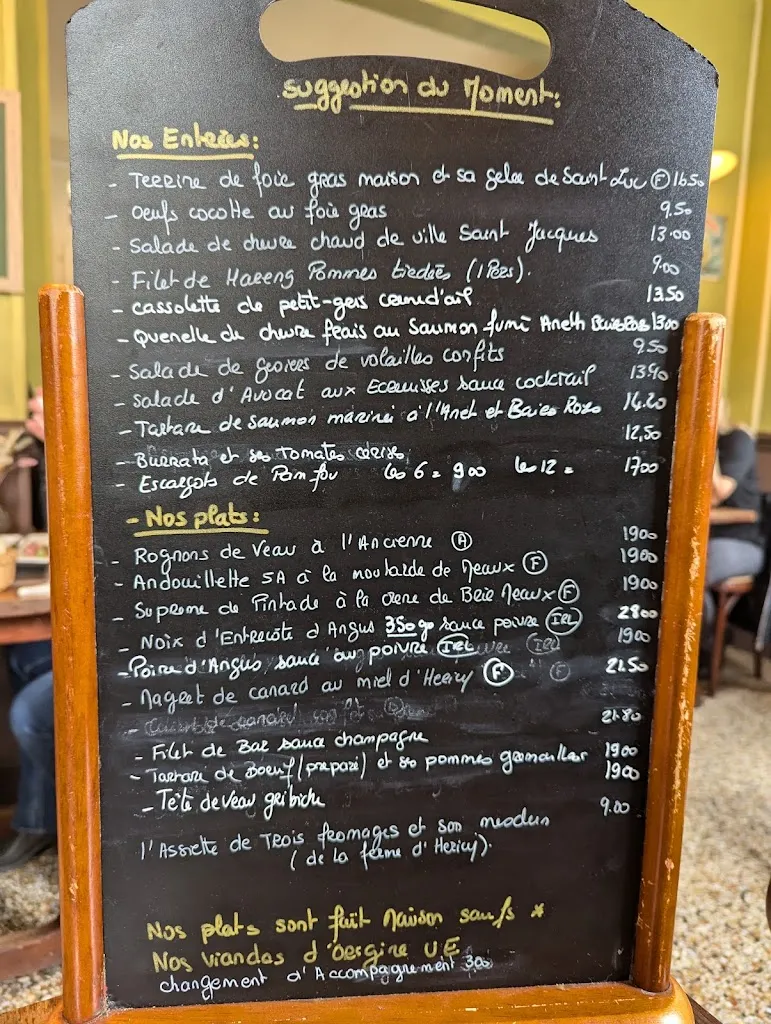 Suggestion du Moment:
Nos Entrées:
- Terrine de foie gras maison et sa gelee de Saint Luc (F) 16.50
- Oeufs cocotte au foie gras 9.50
- Salade de chevre chaud de ville Saint Jacques 13.00
- Filet de Hareng Pommes tiedees (1 Pers). 9.00
- cassolette de petit-gris 13.50
- Quenelle de chevre frais au Saumon fumé Aneth 13.00
- Salade de gesiers de volailles confits 9.50
- Salade d'Avocat aux Ecrevisses sauce cocktail 13.90
- Tartare de saumon mariné à l'Anet et Baies Rose 14.20
- Burrata et ses Tomates cerises 12,50
- Escargots de les 6 = 900 les 12 = 1700
- Nos plats:
- Rognons de Veau à l'Ancienne (A) 1900
- Andouillette 5A à la moutarde de Meaux (F) 1900
- Supreme de Pintade à la creme de Brie Meaux (F) 1900
- Noix d'Entrecote d'Angus 350 gr sauce poivre (IRL) 2800
- Poire d'Angus sauce au poivre (IRL) 1900
- Magret de canard au miel d'Hericy (F) 21.50
- Filet de Bar sauce champagne 21.80
- Tartare de Boeuf (preparé) et ses pommes grenailles 1900
- Tête de veau gribiche 1900
l'Assiette de Trois fromages et son mesclun 9.00
( de la ferme d'Hericy).
Nos plats sont fait Maison saufs *
Nos viandes d'origine UE
changement d'Accompagnement 300